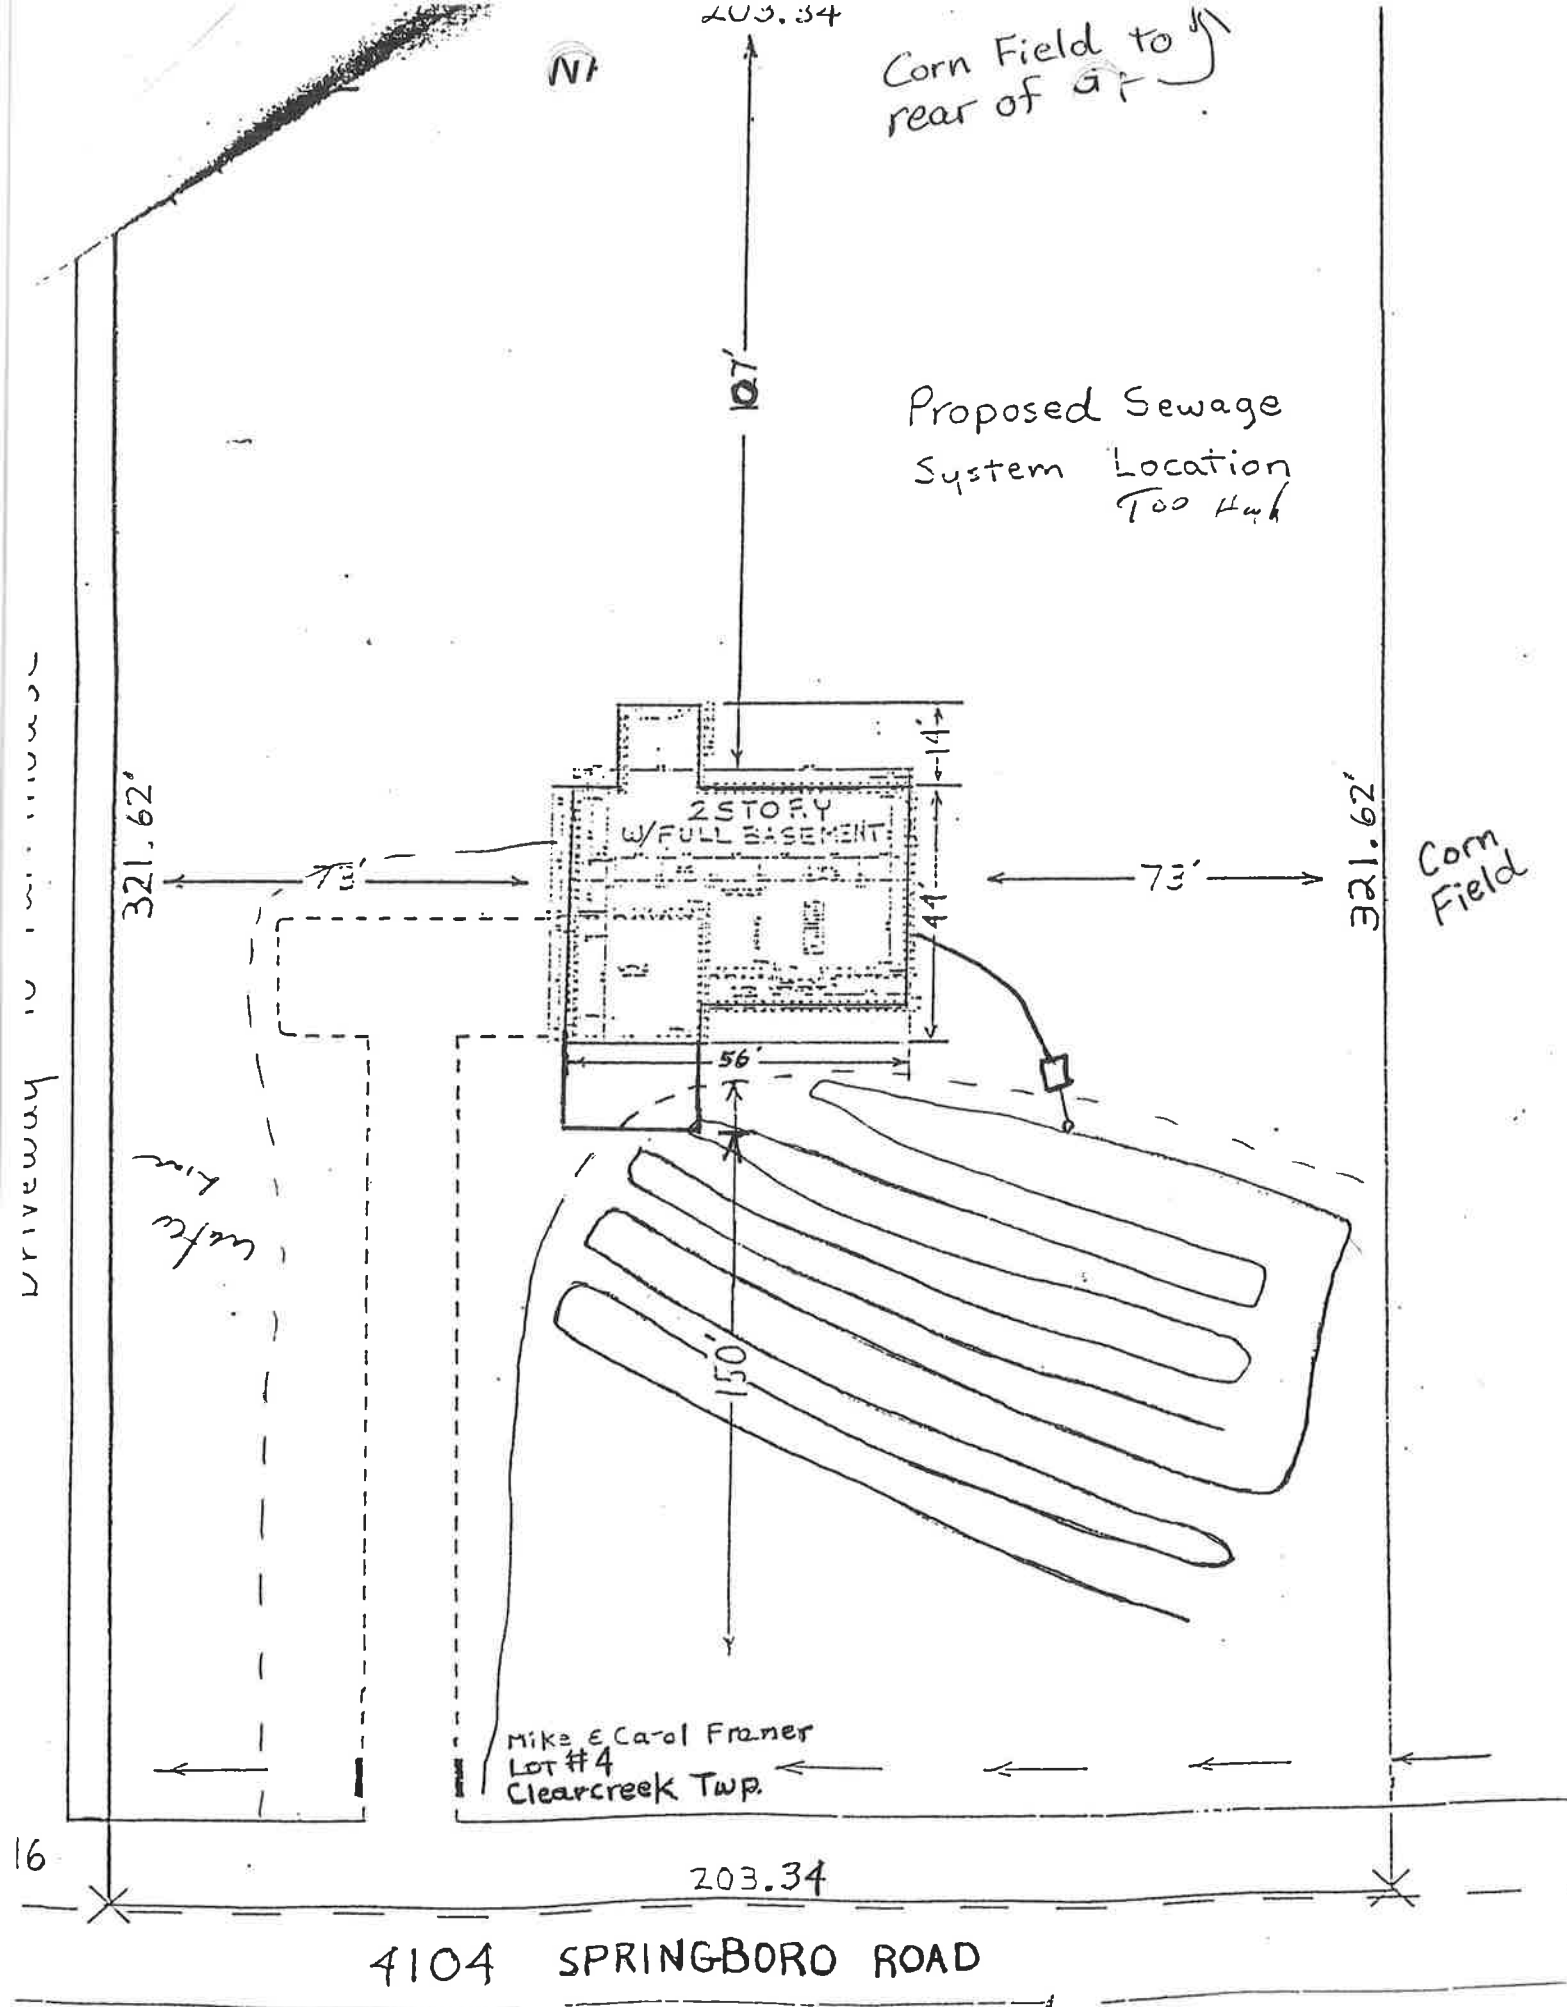 203.34
N
Corn Field to
rear of
107'
Proposed Sewage
System Location
Too High
14'
2 STORY
W/FULL BASEMENT
321.62'
73'
73'
321.62'
Corn
Field
44'
56'
Driveway to
Water
Line
150'
Mike & Carol Framer
LOT #4
Clearcreek Twp.
16
203.34
4104 SPRINGBORO ROAD